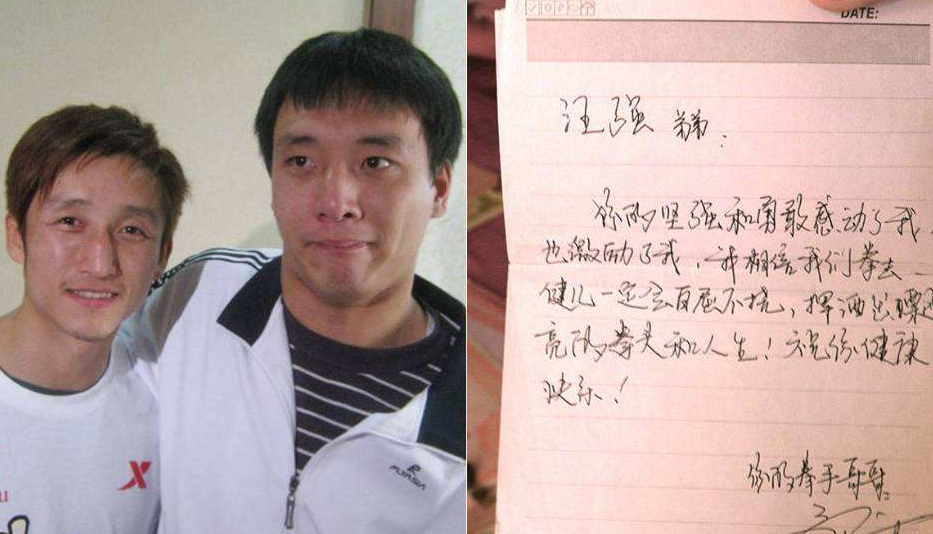 DATE:
汪强弟弟：
你的坚强和勇敢感动了我，
也激励了我，我相信我们拳击
健儿一定会百屈不挠，挥洒出漂
亮的拳头和人生！祝你健康
快乐！
你的拳手哥哥
X
FLYASIA